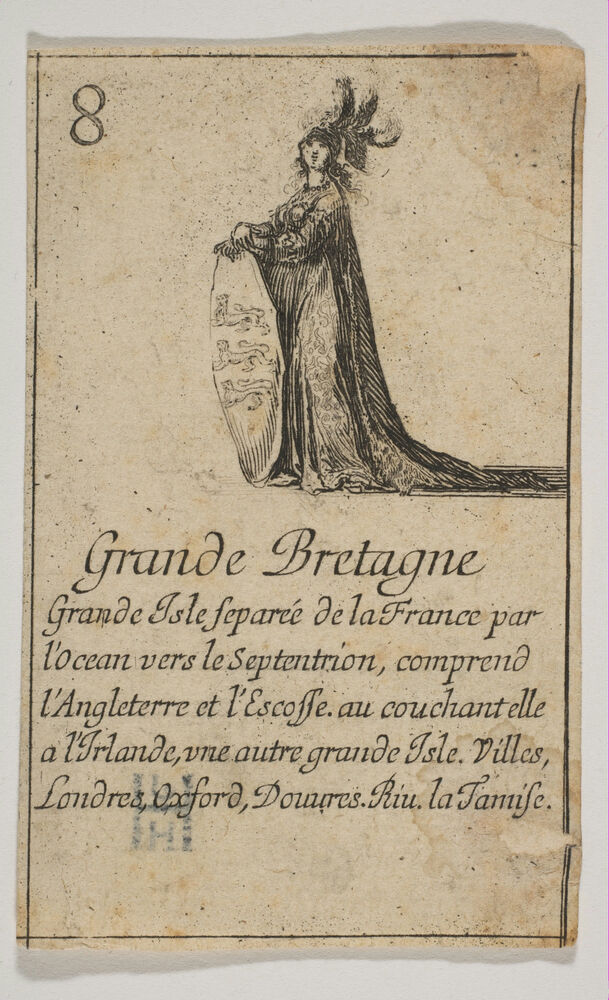 8
Grande Bretagne
Grande Isle ſeparée de la France par
l'Ocean vers le Septentrion, comprend
l'Angleterre et l'Escoſſe. au couchant elle
a l'Irlande, vne autre grande Isle. Villes,
Londres, Oxford, Douures. Riu. la Tamiſe.